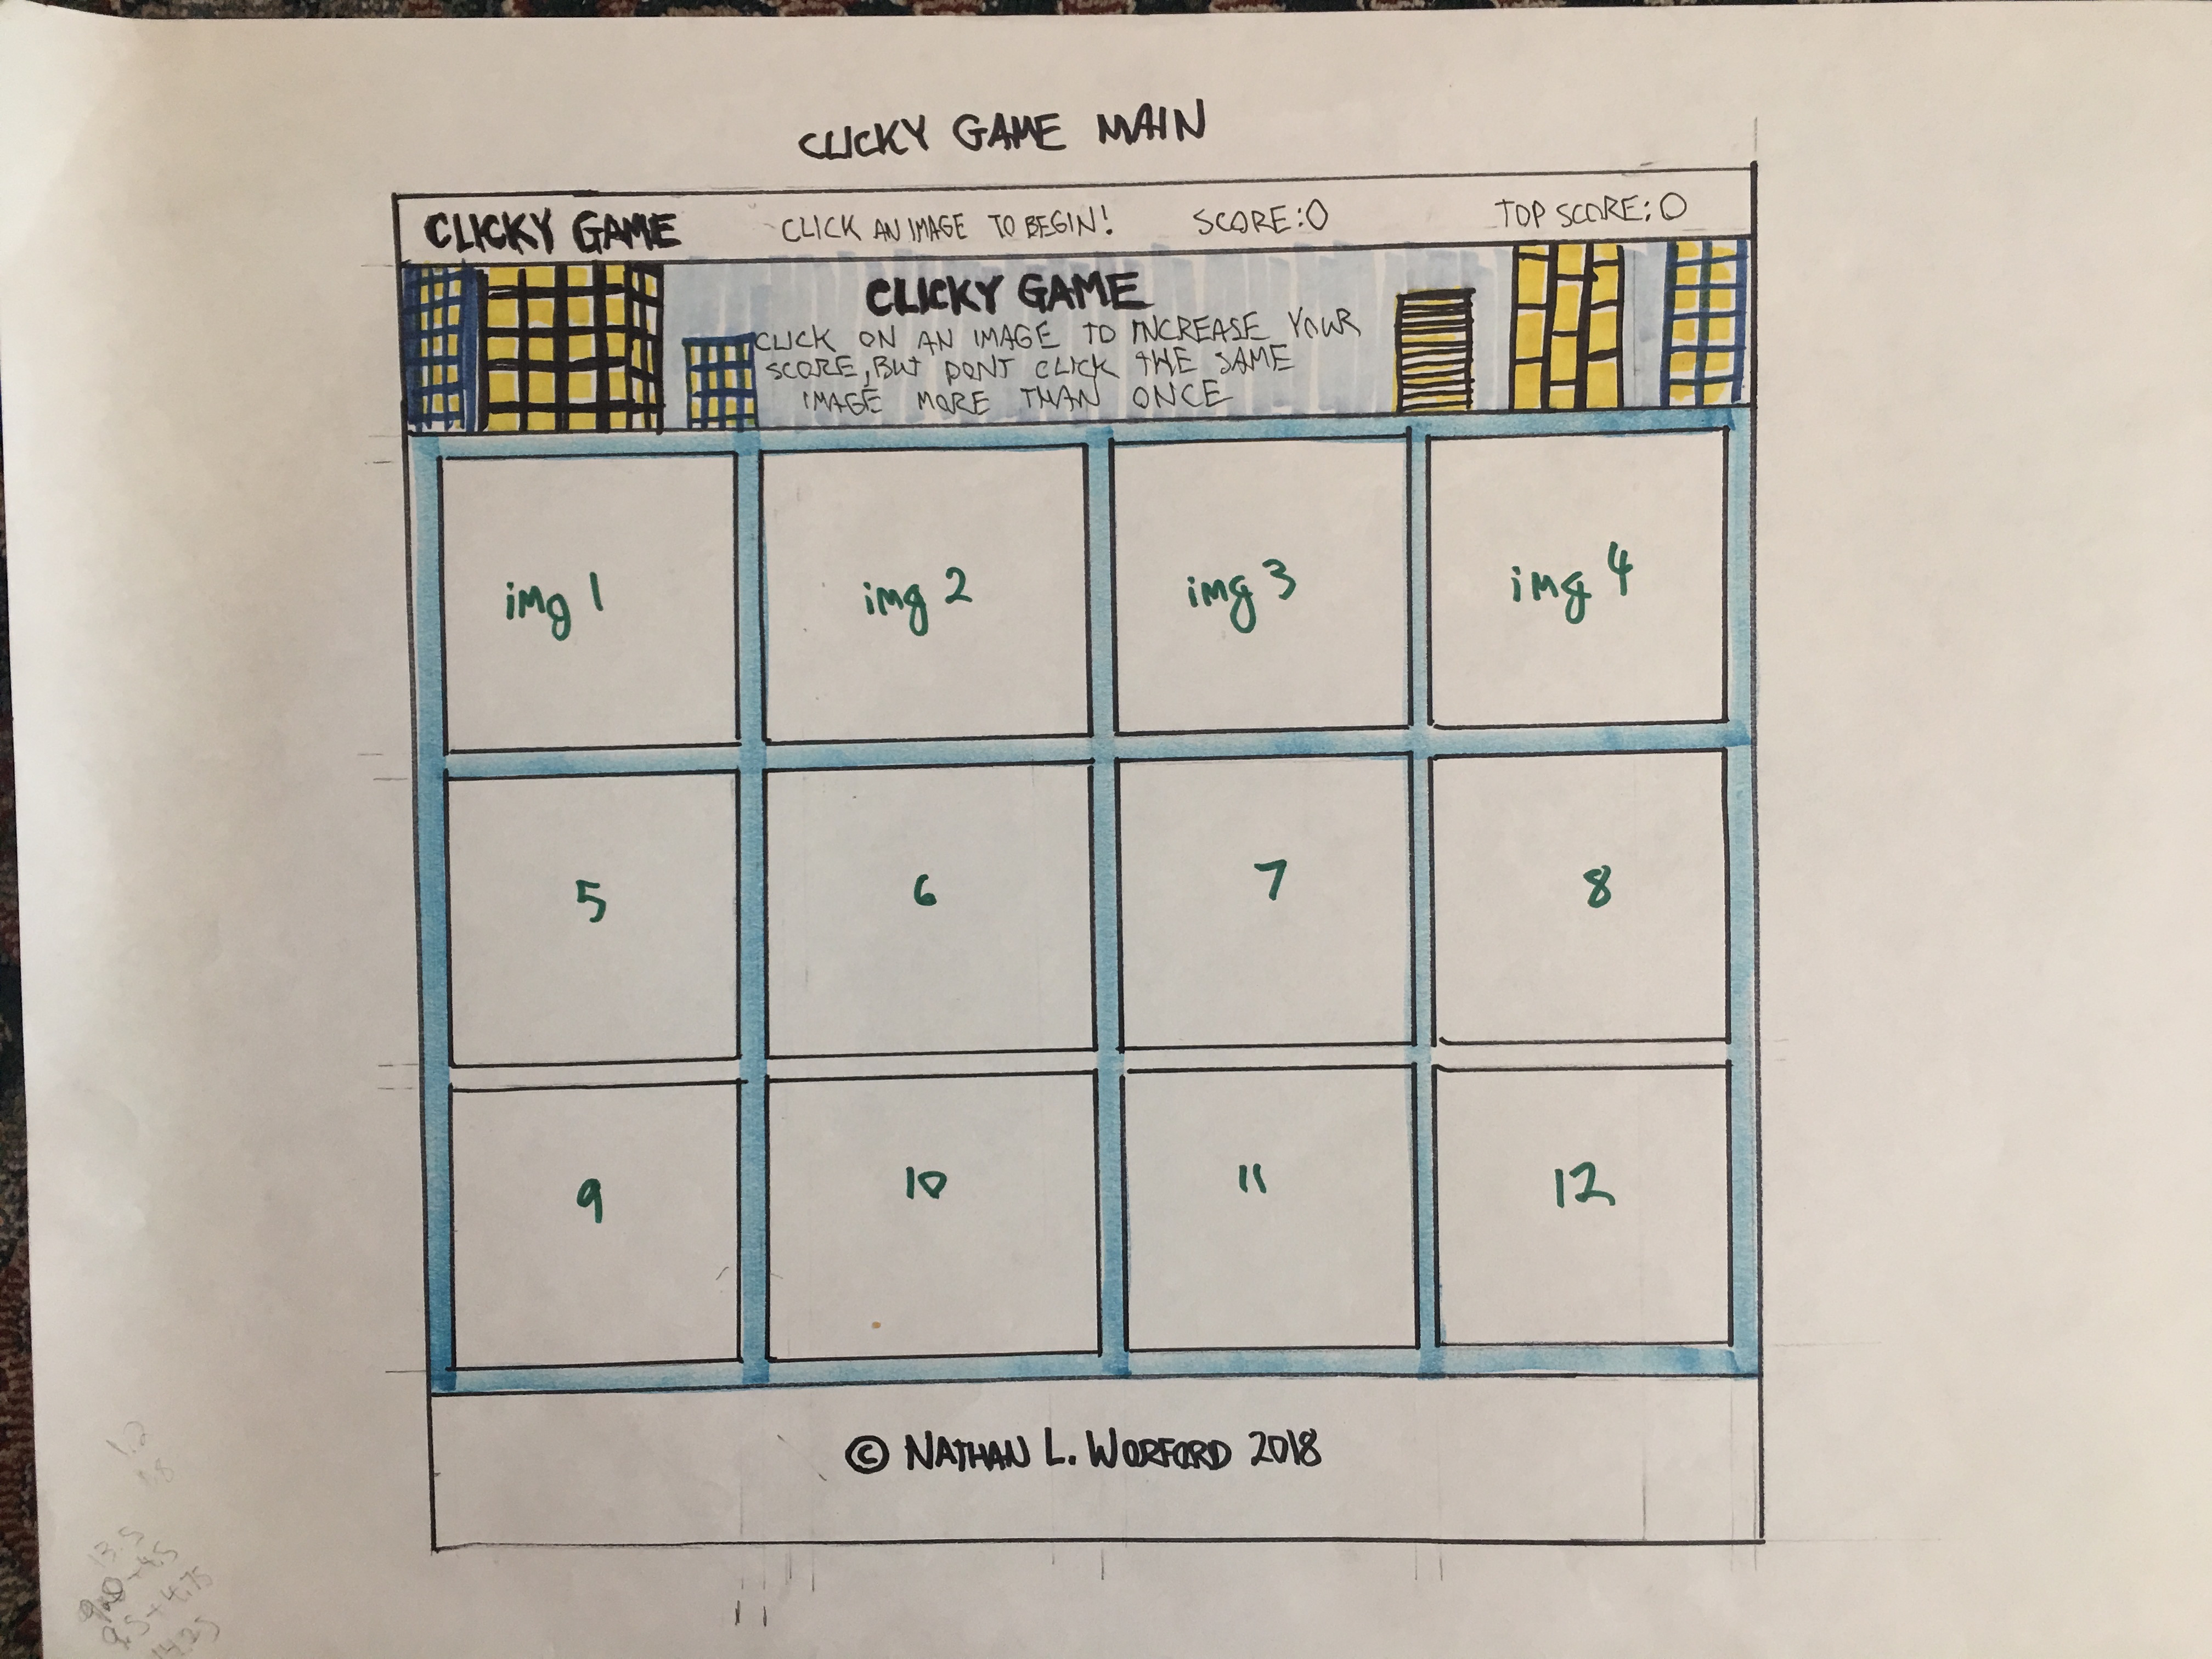 CLICKY GAME MAIN
CLICKY GAME CLICK AN IMAGE TO BEGIN! SCORE:0 TOP SCORE:0
CLICKY GAME
CLICK ON AN IMAGE TO INCREASE YOUR
SCORE, BUT DONT CLICK THE SAME
IMAGE MORE THAN ONCE
img 1 img 2 img 3 img 4
5 6 7 8
9 10 11 12
© NATHAN L. WORFORD 2018